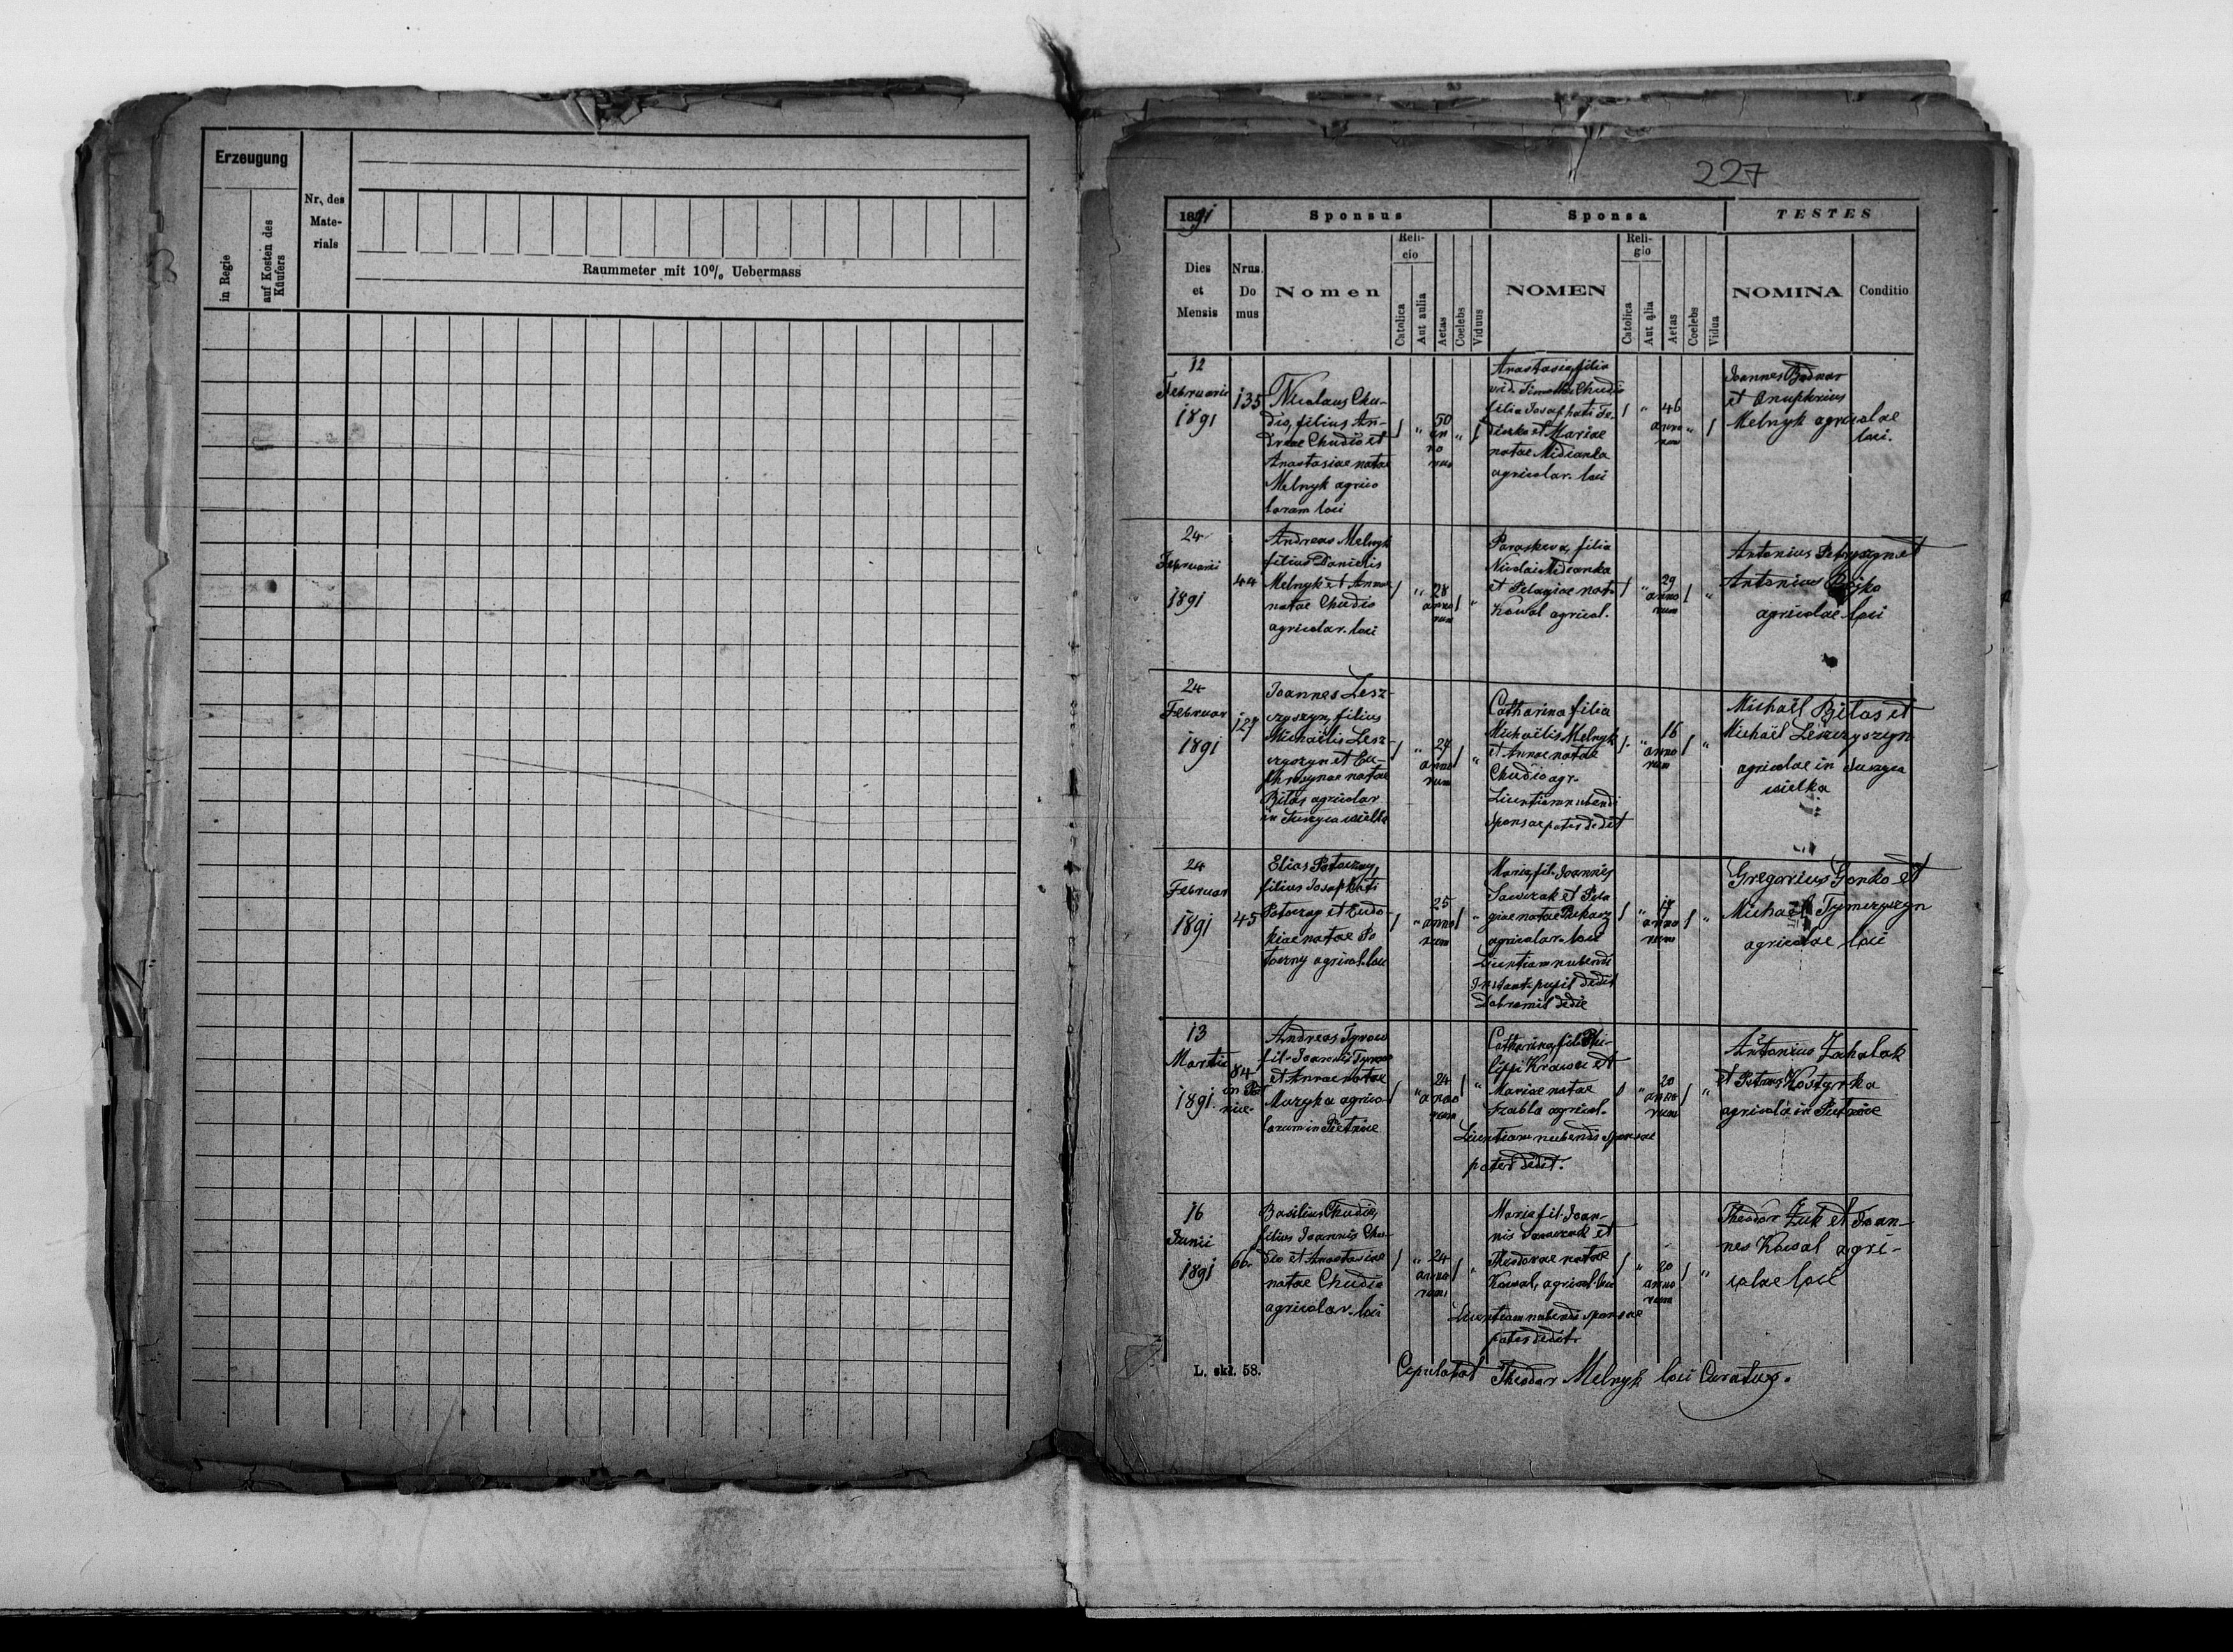 Erzeugung
in Regie
auf Kosten des
Käufers
Nr. des
Mate-
rials
Raummeter mit 10% Uebermass
227
1891
Sponsus
Sponsa
TESTES
Dies
et
Mensis
Nrus.
Do
mus
Nomen
Reli-
cio
Catolica
Aut aulia
Aetas
Coelebs
Viduus
NOMEN
Reli-
gio
Catolica
Aut alia
Aetas
Coelebs
Vidua
NOMINA
Conditio
12
Februarii
1891
135
Nicolaus Chu-
dio, filius An-
dreae Chudio et
Anastasiae natae
Melnyk agrico
larum loci
50
an
no
rum
Anastasia, filia
vid. Timothei Chudio
filia Josaphati
et Mariae
natae Midianka
agricolar. loci
46
anno
rum
Joannes Bodnar
et Onuphrius
Melnyk agricolae
loci.
24
Februarii
1891
44
Andreas Melnyk
filius Danielis
Melnyk et Annae
natae Chudio
agricolar. loci
28
anno
rum
Paraskeva, filia
Nicolai Midianka
et Pelagiae nat.
Kowal agricol.
29
anno
rum
Antonius Petryszyn et
Antonius
agricolae loci
24
Februar
1891
127
Joannes Lesz-
czyszyn, filius
Michaëlis Lesz-
czyszyn et Eu-
phrosynae natae
Bilas agricolar
in Turzyca wielka
24
anno
rum
Catharina filia
Michaëlis Melnyk
et Annae natae
Chudio agr.
Licentiam nubendi
sponsae pater dedit
16
anno
rum
Michaël Bilas et
Michaël Leszczyszyn
agricolae in Turzyca
wielka
24
Februar
1891
45
Elias Potoczny,
filius Josaphati
Potoczny et Eudo-
kiae natae Po
toczny agricol. loci
25
anno
rum
Maria fil. Joannis
Sawczak et Pela
giae natae Piekacz
agricolar. loci
Licentiam nubendi
pupil dedit
Dobromil
anno
rum
Gregorius Gonko et
Michaël Tymczyszyn
agricolae loci
13
Martii
1891
84
Andreas Tyrow
fil. Joannis Tyrow
et Annae natae
Muzyka agrico
larum in
24
anno
rum
Catharina fil. Phi-
lippi Krawec et
Mariae natae
Szabla agricol.
Licentiam nubendi sponsae
pater dedit.
20
anno
rum
Antonius Zahalak
et Petrus Kostyrka
agricola in
16
Junii
1891
66.
Basilius Chudio,
filius Joannis Chu-
dio et Anastasiae
natae Chudio
agricolar. loci
24
anno
rum
Maria fil. Joan-
nis Sawczak et
Theodorae natae
Kowal, agricol. loci
Licentiam nubendi sponsae
pater dedit.
20
anno
rum
Theodor Żuk et Joan-
nes Kowal agri-
colae loci
L. skł. 58.
Copulabat Theodor Melnyk loci Curatus.